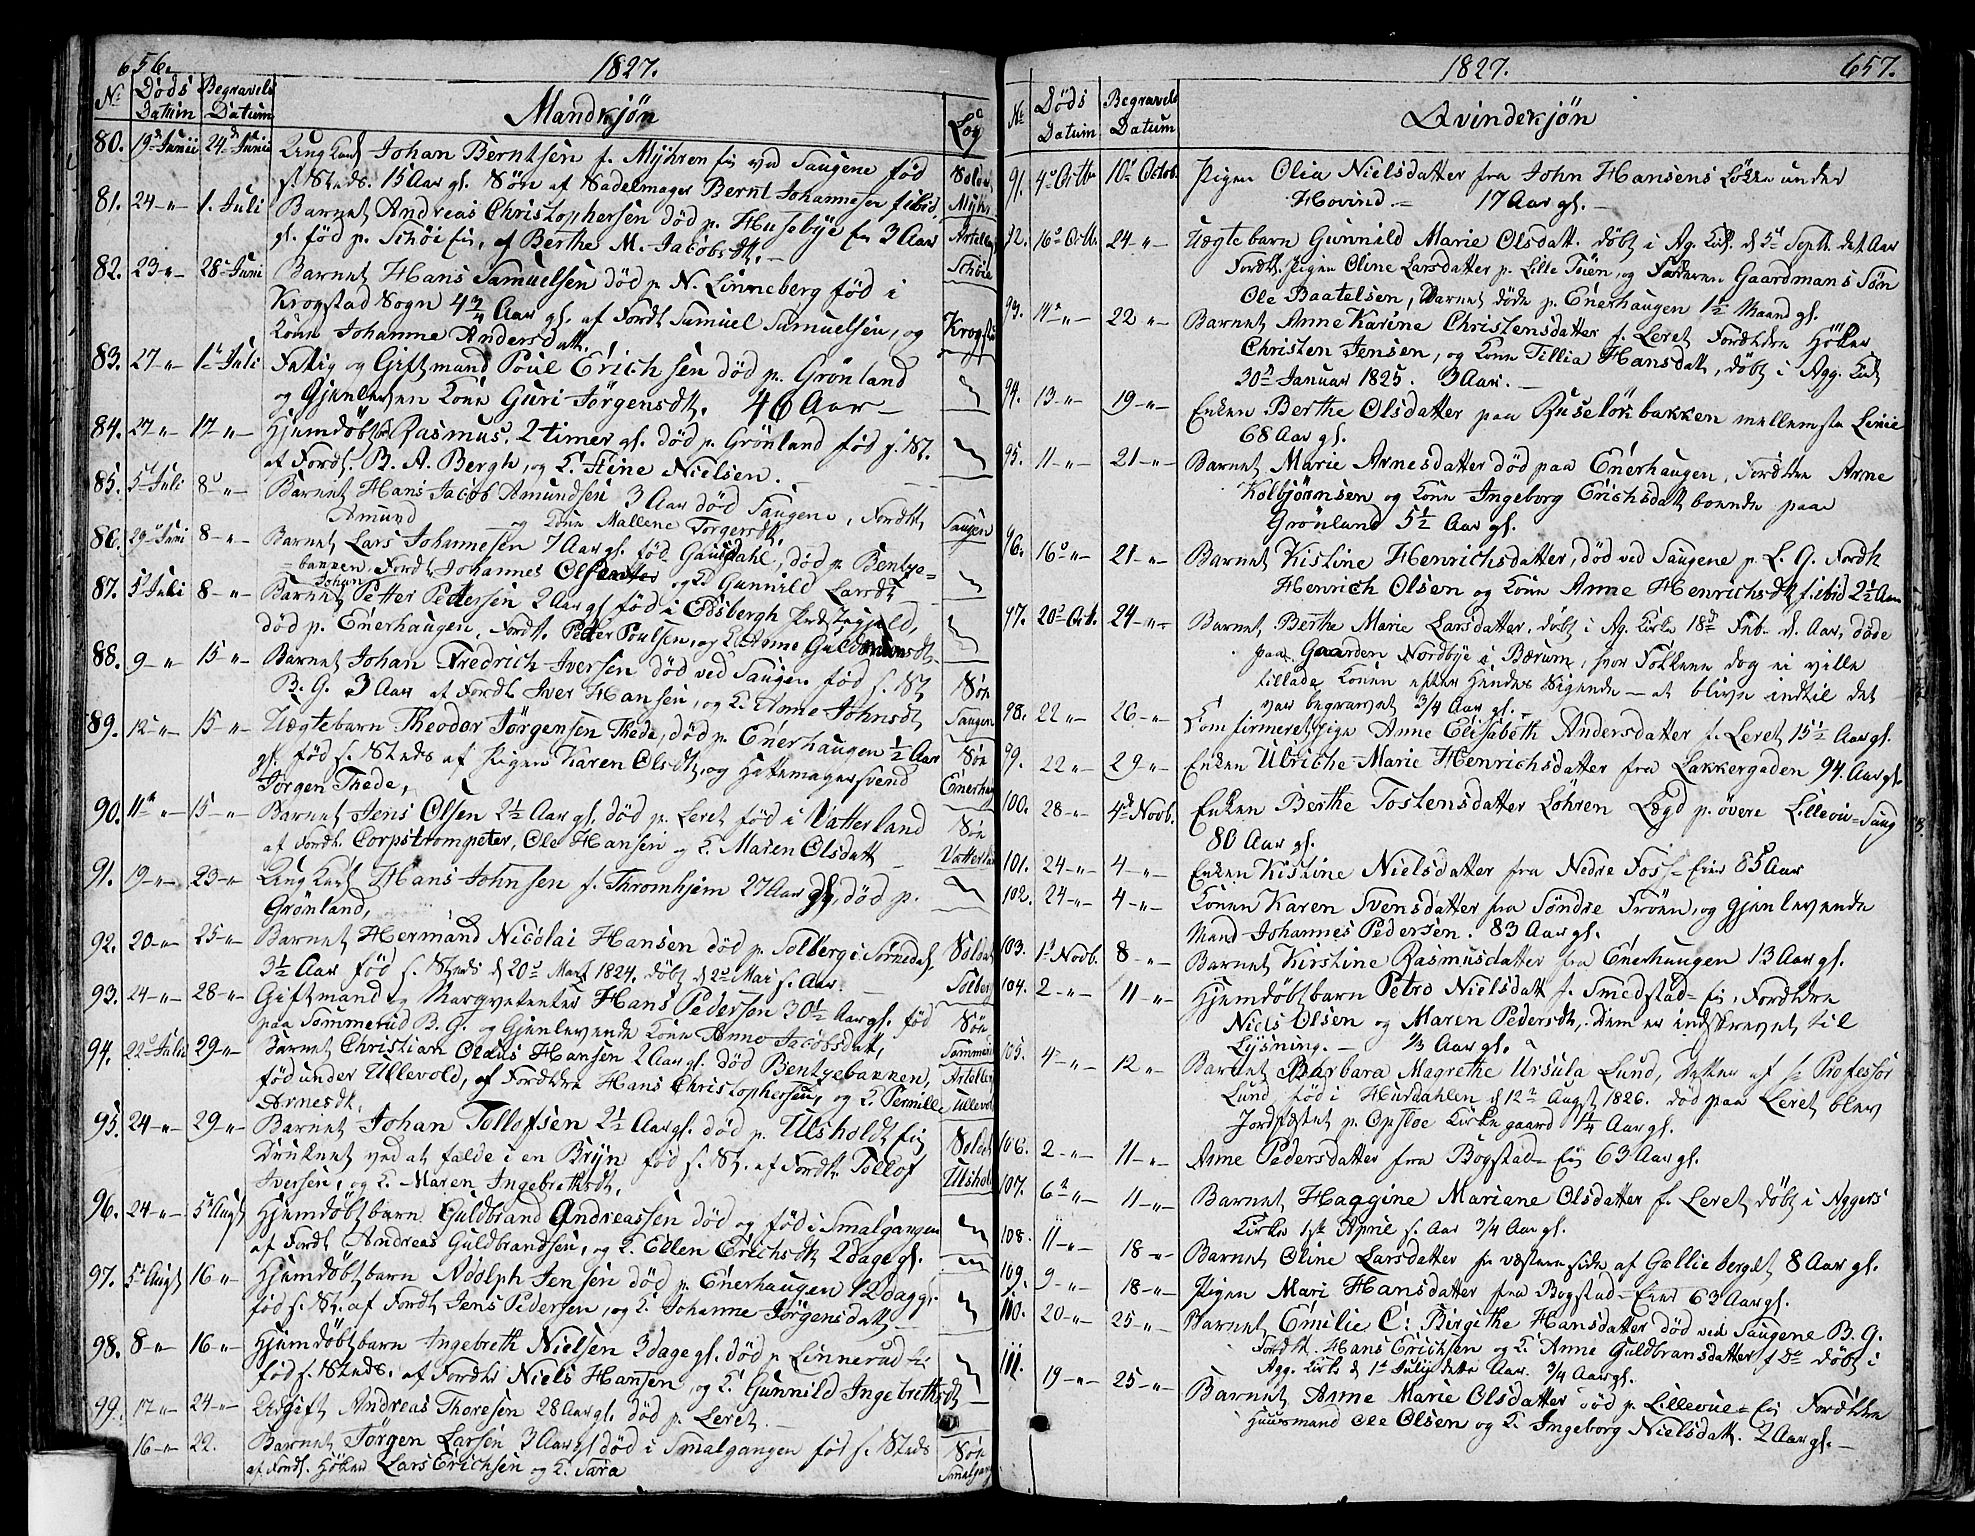 656.
1827.
No
Døds Datum
Begravels Datum
Mandkjøn
Log
80. 19de Junii 24de Junii Ung Karl Johan Berntsen f. Myhren Ei ved Saugene fød
f. Steds. 15 Aar gl. Søn af Sadelmager Bernt Johannesen fibid.
81. 24 -"- 1. Juli Barnet Andreas Christophersen død p. Husebye Ei 3 Aar
gl. fød p. Schöi Ei, af Berthe M. Jacobsdt. -
82. 23 -"- 28de Juni Barnet Hans Samuelsen død p. N. Linneberg fød i
Krogstad Sogn 4 3/4 Aar gl. af Fordt Samuel Samuelsen, og
Kone Johanne Andersdatt.
83. 27 -"- 1de Juli Fattig og Giftmand Poul Erichsen død p. Grönland
og Gjenlevten Kone Guri Jørgensdt. 46 Aar -
84. 27 -"- 17 -"- Hjemdøbt Rasmus. 2 timer gl. død p. Grönland fød f. St.
af Fordt. B. A. Bergh, og K. Stine Nielsen.
85. 5te Juli 8de -"- Barnet Hans Jacob Amundsen 3 Aar død Saugene, Fordt
Amund og Kone Mallene Torgersdt.
86. 29de Juni 8 -"- Barnet Lars Johannesen 7 Aar gl. fød Gausdahl, død p. Bentse-
bakken, Fordt. Johannes Olsen og K. Gunnild Larsdt
87. 5te Juli 8 -"- Barnet Johan Petter Pedersen 2 Aar gl. fød i Edsbergh Præstegield,
død p. Enerhaugen, Fordt. Peder Poulsen, og K. Anne Guldbrandsdt.
88. 9 -"- 15 -"- Barnet Johan Fredrich Iversen død ved Saugen fød f. St
B. G. 3 Aar af Fordt. Iver Hansen, og K. Anne Johnsdt
89. 12 -"- 15 -"- Uægtebarn Theodor Jörgensen Thede, død p. Enerhaugen 1/2 Aar
gl. fød f. Steds af Pigen Karen Olsdt. og Hattemagersvend
Jørgen Thede,
90. 11te -"- 15 -"- Barnet Jens Olsen 2 1/2 Aar gl. død p. Leret fød i Vatterland
af Fordt. Corpstrompeter, Ole Hansen og K. Maren Olsdatt
91. 19 -"- 23 -"- Ung Karl Hans Johnsen f. Thromhjem 27 Aar gl, død p.
Grönland,
92. 20 -"- 25 -"- Barnet Hermand Nicolai Hansen død p. Solberg i Sørnedal,
3 1/2 Aar fød f. Sted d 20de Mart 1824. døbt d 2de Mai s. Aar.
93. 24 -"- 28 -"- Giftmand og Margvetenter Hans Pedersen 30 1/2 Aar gl. fød
paa Sommerud B. G. og Gjenlevende Kone Anne Jacobsdatt,
94. 22de Julii 29 -"- Barnet Christian Olaus Hansen 2 Aar gl. død Bentsebakken,
fød under Ullevold, af Fordtdre Hans Christophersen, og K. Pernille
Arnesdt.
95. 24 -"- 29 -"- Barnet Johan Tollofsen 2 1/2 Aar gl. død p. Ulsholdt Ei
Druknet ved at falde i en Bryn fød f. St. af Fordt. Tollof
Iversen, og K. Maren Ingebrethsdt.
96. 24 -"- 5te Augst Hjemdøbt barn Guldbrand Andreassen død og fød i Smalgangen
af Fordt Andreas Guldbrandsen, og K. Ellen Erichsdt 2 dage gl.
97. 5te Augst 16 -"- Hjemdøbt barn Adolph Jensen død p. Enerhaugen 12 dag gl.
fød f. St. af Fordt Jens Pedersen, og K. Johanne Jörgensdatt.
98. 8 -"- 16 -"- Hjemdøbt barn Ingebreth Nielsen 3 dage gl. død p. Linnerud Ei
fød f. Steds. af Fordtre Niels Hansen, og K. Gunnild Ingebrethsdt
99. 17 -"- 24 -"- Ugift Andreas Thoresen 28 Aar gl. død p. Leret. -
16 -"- 22. Barnet Jörgen Larsen 3 Aar gl død i Smalgangen fød f. Steds
af Fordt. Høker Lars Erichsen og K. Sara
1827.
657.
No
Døds Datum
Begravels Datum
Qvindekjön
91. 4de Octbr 10de Octob. Pigen Olia Nielsdatter fra John Hansens Løkke under
Hovind. - 17 Aar gl. -
92. 16de Octb. 24 -"- Uægte barn Gunnild Marie Olsdatt. døbt i Ag. Kirk. d 5te Septb. det Aar
Fordt. Pigen Oline Larsdatter p. Lille Töien, og Faderen Gaardmans Søn
Ole Baatelsen, Barnet døde p. Enerhaugen 1 1/2 Maand gl.
93. 14de -"- 22 -"- Barnet Anne Karine Christensdatter f. Leret Fordtdre Höker
Christen Jensen, og Kone Tillia Hansdatt, døbt i Agg. Kirk
30te Januar 1825. 3 Aar. -
94. 13 -"- 19 -"- Enken Berthe Olsdatter paa Ruselökbakken mellemste Linie
68 Aar gl.
95. 11 -"- 21 -"- Barnet Marie Arnesdatter død paa Enerhaugen, Fordtdre Arne
Kolbjørnsen og Kone Ingeborg Erichsdatt boende paa
Grönland 5 1/2 Aar gl.
96. 16de -"- 21 -"- Barnet Kistine Henrichsdatter, død ved Saugene p. L. G. Fordt
Henrich Olsen og Kone Anne Henrichsdt, fibid 2 1/2 Aar
97. 20de Oct. 24 -"- Barnet Berthe Marie Larsdatter, døbt i Ag. Kirke 18de Feb. d. Aar, døde
paa Gaarden Nordbye i Bærum, hvor Folkene dog ei ville
tillade Konen efter hendes Sigende - at blive indtil det
var begravet 3/4 Aar gl. -
98. 22 -"- 26 -"- Confirmeret Pige Anne Elisabeth Andersdatter f. Leret 15 1/2 Aar gl.
99. 22 -"- 29 -"- Enken Ulriche-Marie Henrichsdatter fra Lakkergaden 94. Aar gl.
100. 28 -"- 4de Novb. Enken Berthe Tostensdatter Lohren Lægd p. övere Lilleou-Saug
80 Aar gl.
101. 24 -"- 4 -"- Enken Kistine Nielsdatter fra Nedre Foss-Eier 85 Aar
102. 24 -"- 4 -"- Konen Karen Svensdatter fra Søndre Fröen, og gjenlevende
Mand Johannes Pedersen. 83 Aar gl.
103. 1te Novb. 8 -"- Barnet Kirstine Rasmusdatter fra Enerhaugen 13 Aar gl.
104. 2 -"- 11 -"- Hjemdøbt barn Petro Nielsdatt f. Smedstad-Ei, Fordtdre
Niels Olsen og Maren Pedersdt, Dem er indskrevet til
Lysning. - 1/3 Aar gl.
105. 4de -"- 12 -"- Barnet Barbara Magrethe Ursula Lund, Datter af Hr Professor
Lund, fød i Hurdahlen d 12te Augst 1826. Død paa Leret blev
Jordfæstet p. Opsloe Kirkegaard 1 1/4 Aar gl.
106. 2 -"- 11 -"- Anne Pedersdatter fra Bogstad-Ei 63 Aar gl.
107. 6te -"- 11 -"- Barnet Haggine Mariane Olsdatter f. Leret døbt i Aggers
Kirke 1ste April s. Aar 3/4 Aar gl.
108. 11 -"- 18 -"- Barnet Oline Larsdatter fra vestere side af Gallieberget 8 Aar gl.
109. 9 -"- 18 -"- Pigen Mari Hansdatter fra Bogstad-Eier 63 Aar gl.
110. 20 -"- 25 -"- Barnet Emilie C: Birgithe Hansdatter død ved Saugene B. G.
Fordt. Hans Erichsen og K. Anne Guldbransdatter f Do døbt i
Agg. Kirke d 1te July dette Aar. 3/4 Aar gl.
111. 19 -"- 25 -"- Barnet Anne Marie Olsdatter død p. Lilleoue-Ei Fordtdre
Huusmand Ole Olsen og K. Ingeborg Nielsdatt. 2 Aar gl. -